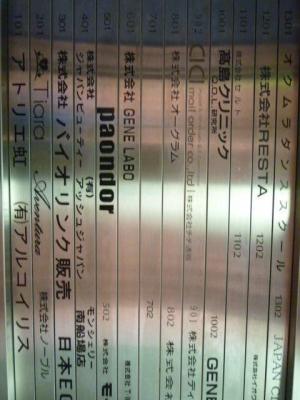 1301 オクムラダンススクール
1302 JAPAN
1201 株式会社RESTA
1202
1101 株式会社セルト
1102
1001 高島クリニック
J.O.L. 研究所
1002 GENE
mail order co.,ltd 株式会社チチ通販
901 株式会社ディ
801 株式会社オーグラム
802 株式会
701
702
601 株式会社 GENE LABO
501 paondor
502 株式会社 モ
401 株式会社ジャパンビューティー
(有)アッシュジャパン
モンシェリー南船場店
301 株式会社 バイオリンク販売
日本EC
201 Tiara
Aventura
株式会社ノーブル
101 アトリエ虹
(有)アルコイリス